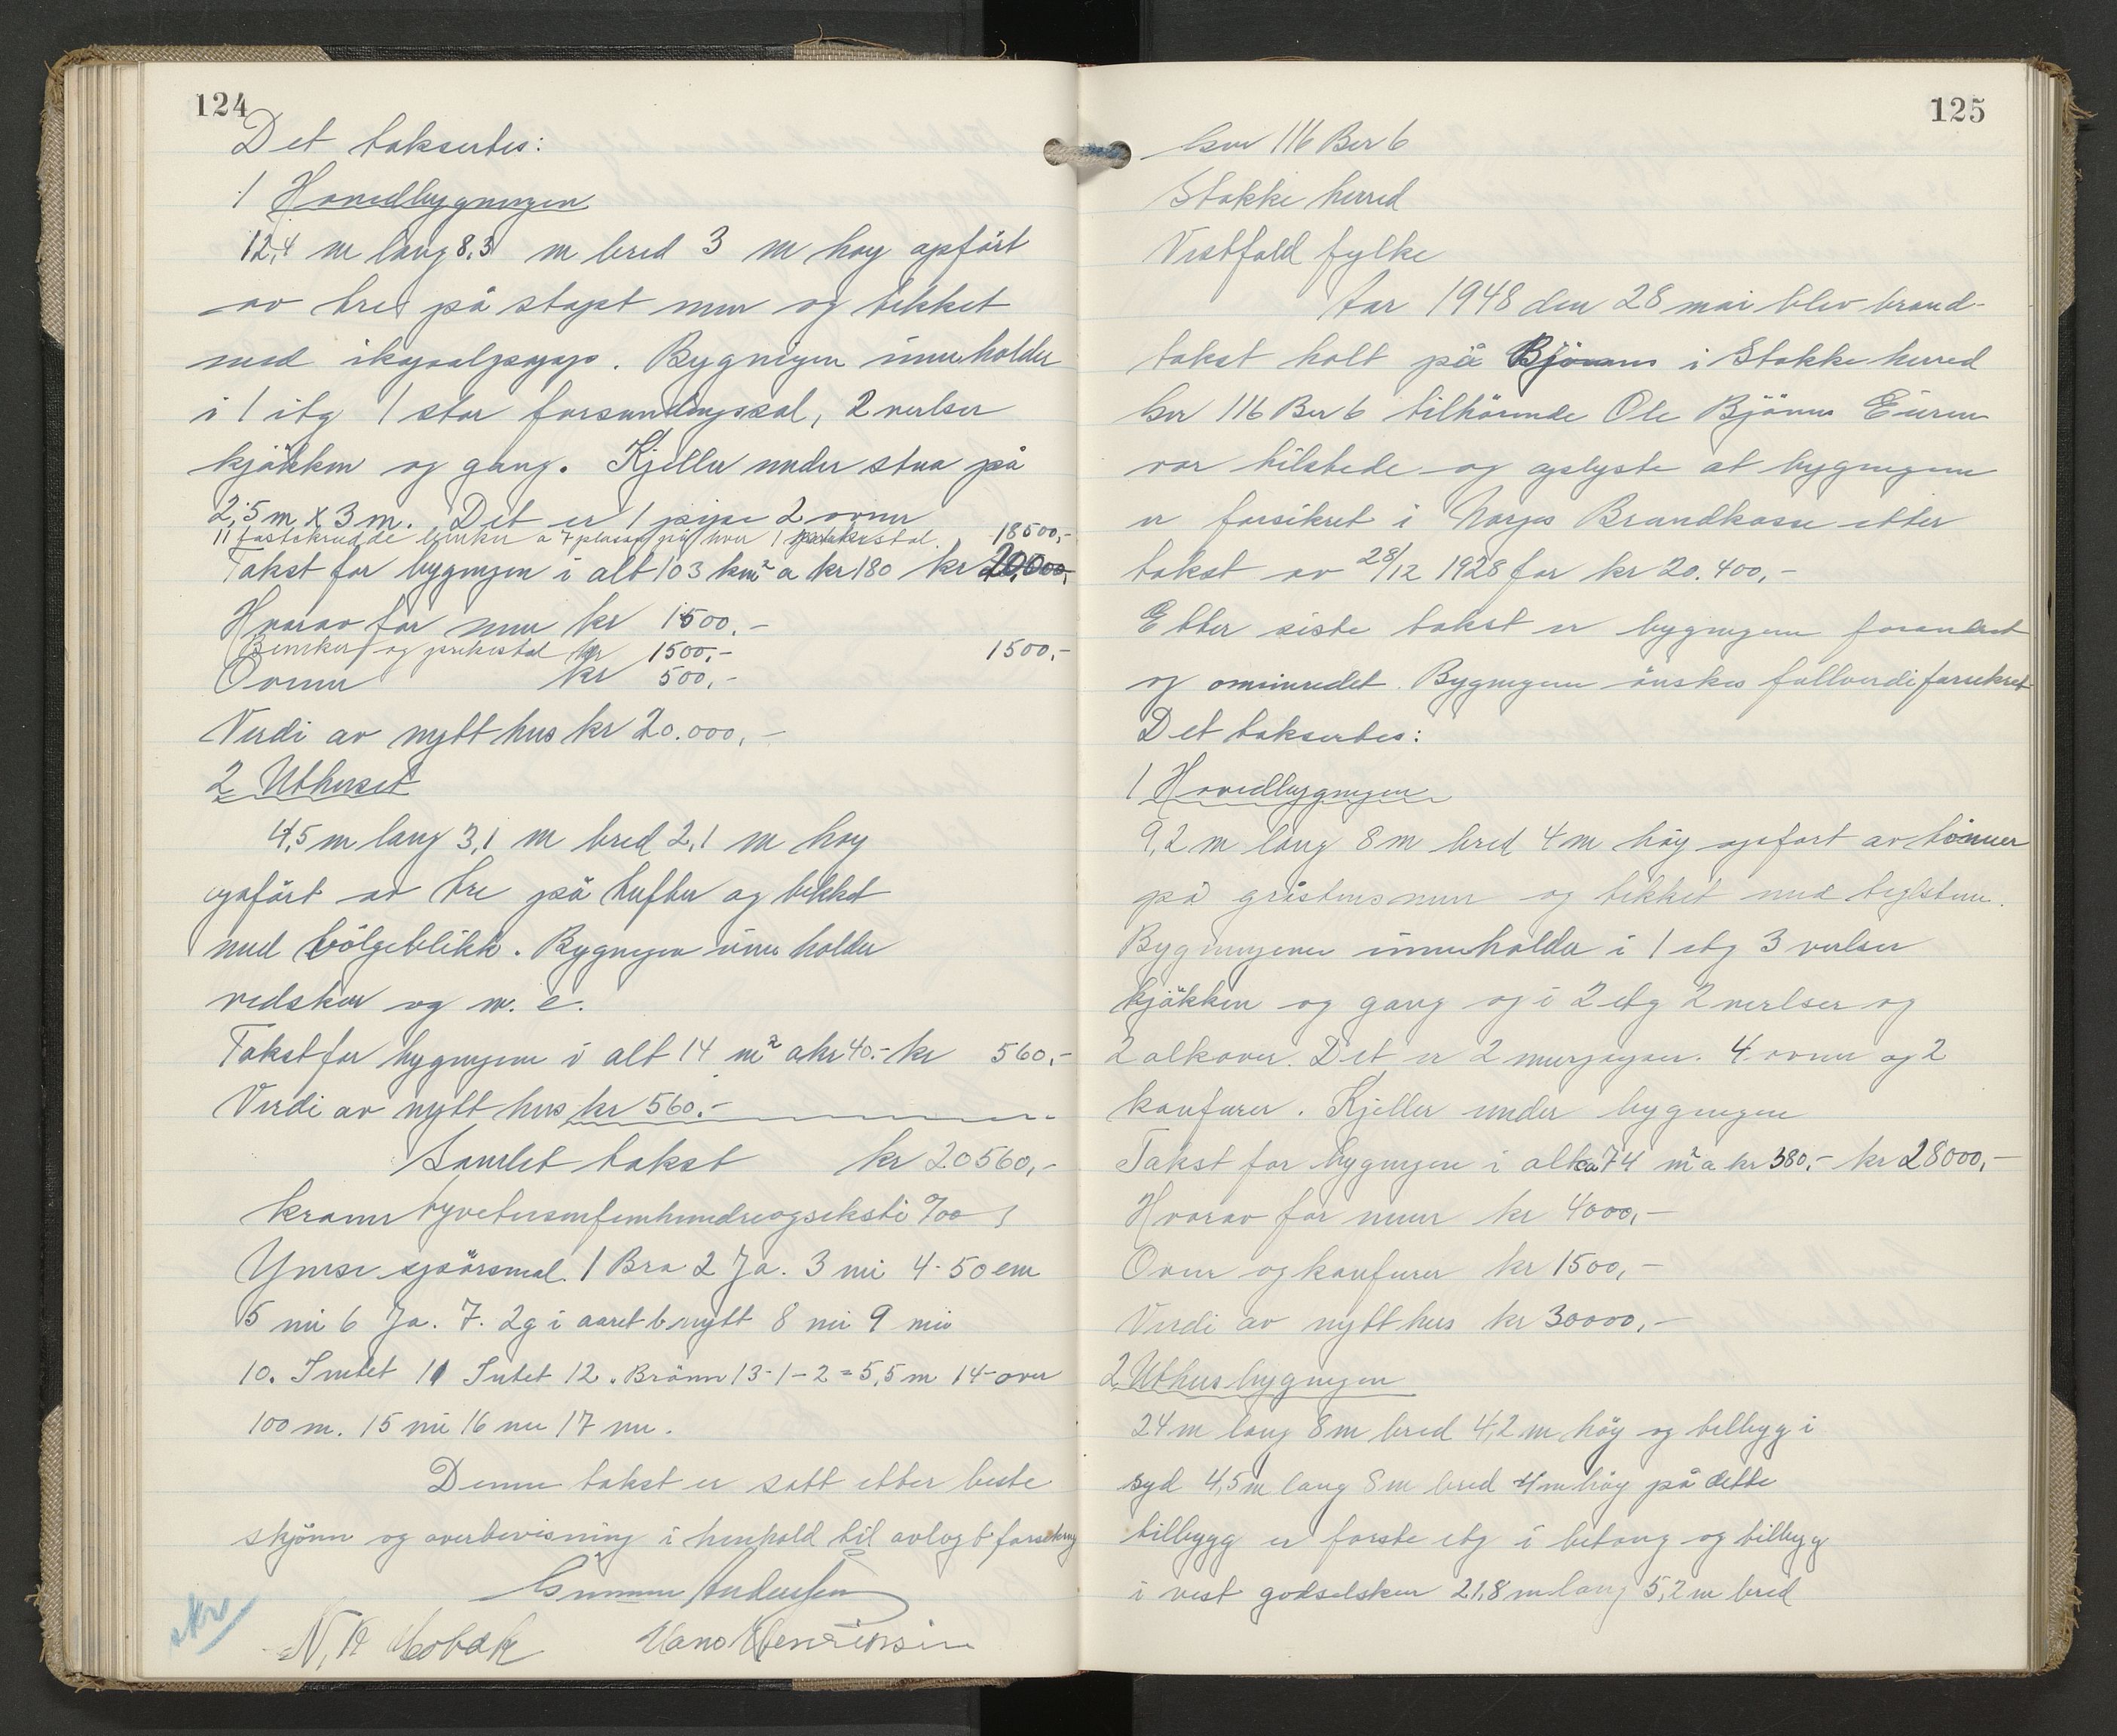 124
Det taksertes:
1 Hovedbygningen
12,4 m lang 8,3 m bred 3 m høy opført
av tre på støpt mur og tekket
med ikopalpapp. Bygnigen inneholder
i 1 etg 1 stor forsamlingssal, 2 verlser
kjøkken og gang. Kjeller under stua på
2,5 m x 3 m. Det er 1 pipe 2 ovner
11 fastskrudde benker a 7 plasser på hver 1 prekestol. 18500,-
Takst for bygnigen i alt 103 km² a kr 180 kr 20,000,-
Hvorav for mur kr 1500,-
Benker og prekestol kr 1500,- 1500,-
Ovner kr 500,-
Verdi av nytt hus kr 20.000,-
2 Uthuset
4,5 m lang 3,1 m bred 2,1 m høy
opført av tre på tufter og tekket
med bølgeblikk. Bygnigen inne holder
vedskur og w. c.
Takst for bygnigen i alt 14 m² a kr 40.- kr 560,-
Verdi av nytt hus kr 560.-
Samlet takst kr 20560,-
kroner tyvetusenfemhundreogseksti %00
Ymse spørsmal. 1 Bra 2 Ja. 3 nei 4-50 cm
5 nei 6 Ja. 7. 2g i aaret b nytt 8 nei 9 nei
10. Intet 11 Intet 12. Brønn 13-1-2=5,5 m 14-over
100 m. 15 nei 16 nei 17 nei.
Denne takst er satt etter beste
skjønn og overbevisning i henhold til avlagt forsikring
Gunnar Andersen
N. K Hobæk Hans Henriksen
skr
125
Gnr 116 Bnr 6
Stokke herred
Vestfold fylke
Aar 1948 den 28 mai blev brand-
takst holt på Bjønnes i Stokke herred
Gnr 116 Bnr 6 tilhørende Ole Bjønnes Eieren
var tilstede og oplyste at bygnigene
er forsikret i Norges Brandkasse etter
takst av 28/12 1928 for kr 20.400,-
Etter siste takst er bygnigene forandret
og ominredet. Bygnigene ønskes fullverdiforsikret
Det taksertes:
1 Hovedbygnigen
9,2 m lang 8 m bred 4 m høy opført av tømmer
på gråstensmur og tekket med teglsten.
Bygnigenen inneholder i 1 etg 3 verlser
kjøkken og gang og i 2 etg 2 verlser og
2 alkover. Det er 2 murpiper. 4 ovner og 2
komfurer. Kjeller under bygnigen
Takst for bygnigen i alt ca 74 m² a kr 380,- kr 28000,-
Hvorav for mur kr 4000,-
Ovner og komfurer kr 1500,-
Verdi av nytt hus kr 30000,-
2 Uthusbygnigen
24 m lang 8 m bred 4,2 m høy og tilbygg i
syd 4,5 m lang 8 m bred 4 m høy på dette
tilbygg er første etg i betong og tilbygg
i vest gødselskur 21,8 m lang 5,2 m bred